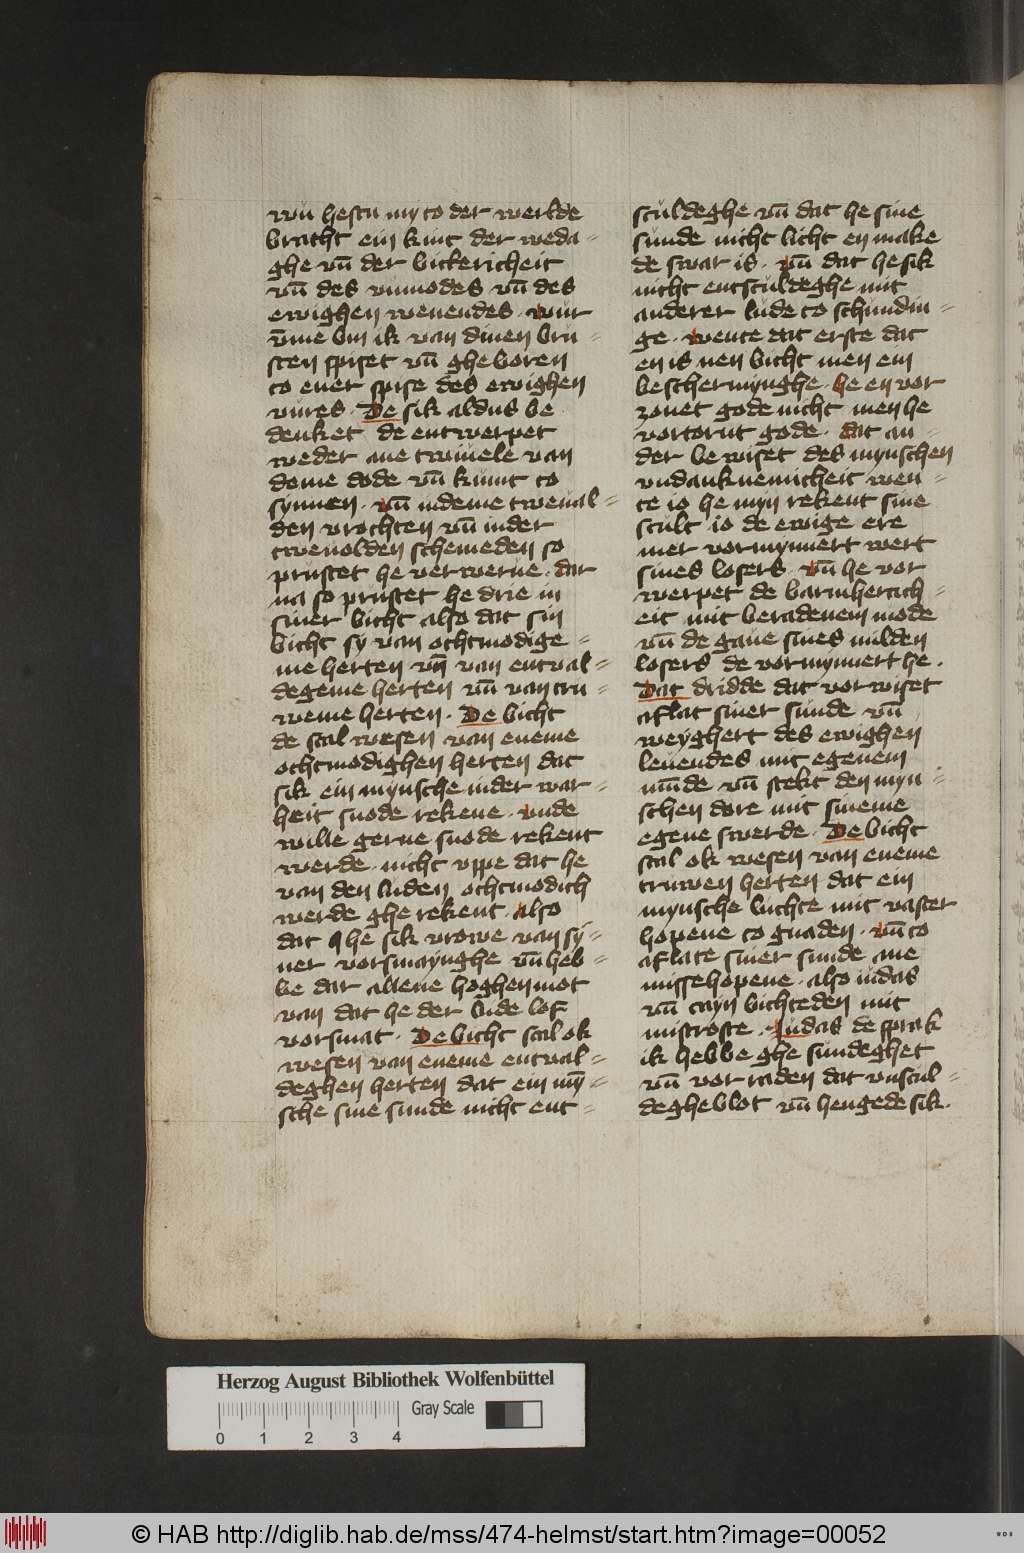 wu hestu my to der werlde
bracht ein kint der weda⸗
ghe vn̄ der bittericheit
vn̄ des vnmodes vn̄ des
ewighen wenendes · wur
vm̄e bin ik van dinen bru⸗
sten spiset vn̄ gheboren
to ener spise des ewighen
vures · De sik aldus be
denket de entwerpet
weder ane twiuele van
deme dode vn̄ kumt to
synnen · vn̄ in deme tweual⸗
den vrochten vn̄ in der
tweuolden schemeden so
prustet he verwerue · dar
na so prustet he drie in
siner bicht also dat sin
bicht sy van othmodige⸗
me herten vn̄ van entual⸗
degeme herten vn̄ van tru⸗
weme herten · De bicht
de scal wesen van eneme
othmodighen herten dat
sik ein mynsche in der war⸗
heit snode rekene · vnde
wille gerne snode rekent
werde · nicht vppe dat he
van den luden othmodich
werde gherekent · also
dat he sik vrowe van sy⸗
ner vorsmaynghe vn̄ heb⸗
be dar allene hoghenmot
van dat he der lude lof
vorsmat · De bicht scal ok
wesen van eneme entual⸗
deghen herten dat ein myn̄⸗
sche sine sunde nicht ent⸗
sculdeghe vn̄ dat he sine
sunde nicht licht en make
de swar is · vn̄ dat he sik
nicht entsculdeghe mit
anderer lude to schundin⸗
ge · wente dat erste dat
en is nen bicht men ein
beschermynghe · he en vor
zonet gode nicht men he
vortornt gode · dat an⸗
der bewiset des mynschen
vndanknemicheit wen⸗
te io he myn rekent sine
scult io de ewige ere
mer vormynnert wert
sines losers · vn̄ he vor
werpet de barmhertich⸗
eit mit beradenem mode
vn̄ de gaue sines milden
losers de vormynnert he ·
Dat dridde dat vorwiset
aflat siner sunde vn̄
weyghert des ewighen
leuendes mit egenem
munde vn̄ stekt den myn⸗
schen dore mit sineme
egene swerde · De bicht
scal ok wesen van eneme
truwen herten dat ein
mynsche bichte mit vaster
hopene to gnaden · vn̄ to
aflate siner sunde ane
missehopene · also iudas
vn̄ cayn bichteden mit
mistroste · Iudas de sprak
ik hebbe ghesundeghet
vn̄ vorraden dat vnscul⸗
deghe blot vn̄ hengede sik ·
Herzog August Bibliothek Wolfenbüttel
0 1 2 3 4 Gray Scale
© HAB http://diglib.hab.de/mss/474-helmst/start.htm?image=00052
WDB